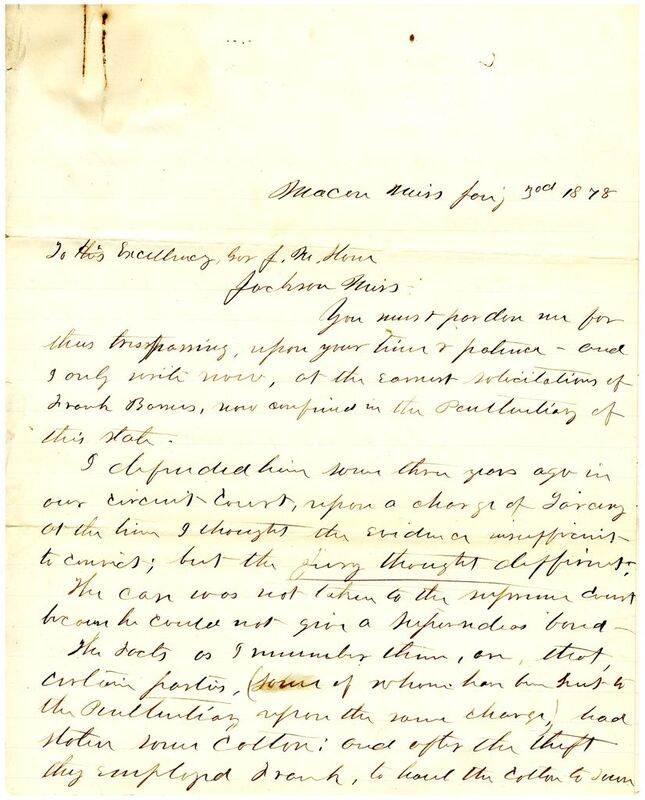 Macon Miss Jany 3rd 1878
To His Excellency, Gov J. M. Stone
Jackson Miss -
You must pardon me for
thus tresspassing, upon your time & patience - and
I only write now, at the earnest solicitations of
Frank Barnes, now confined in the Penitentiary of
this state.
I defended him some three years ago in
our circuit court, upon a charge of Larceny.
at the time I thought the evidence insufficient
to convict; but the jury thought different;
The case was not taken to the supreme court
because he could not give a supersedeas bond -
The facts as I remember them, are, that,
certain parties, (some of whom have been sent to
the Penitentiary upon the same charge,) had
stolen some cotton; and after the theft
they employed Frank, to haul the cotton to town